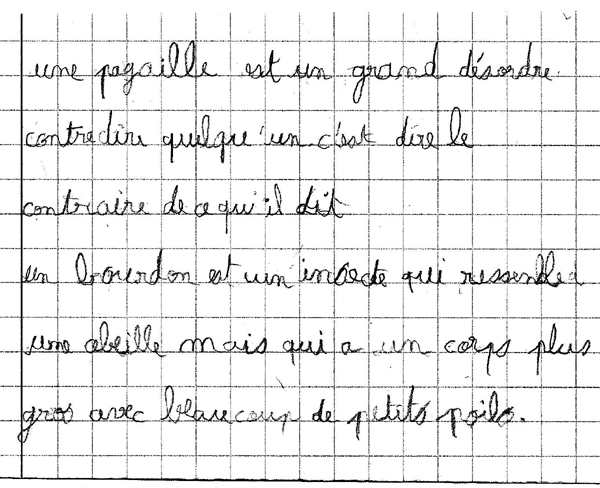 une pagaille est un grand désordre.
contredire quelqu'un c'est dire le
contraire de ce qu'il dit
un bourdon est un insecte qui ressemble à
une abeille mais qui a un corps plus
gros avec beaucoup de petits poils.